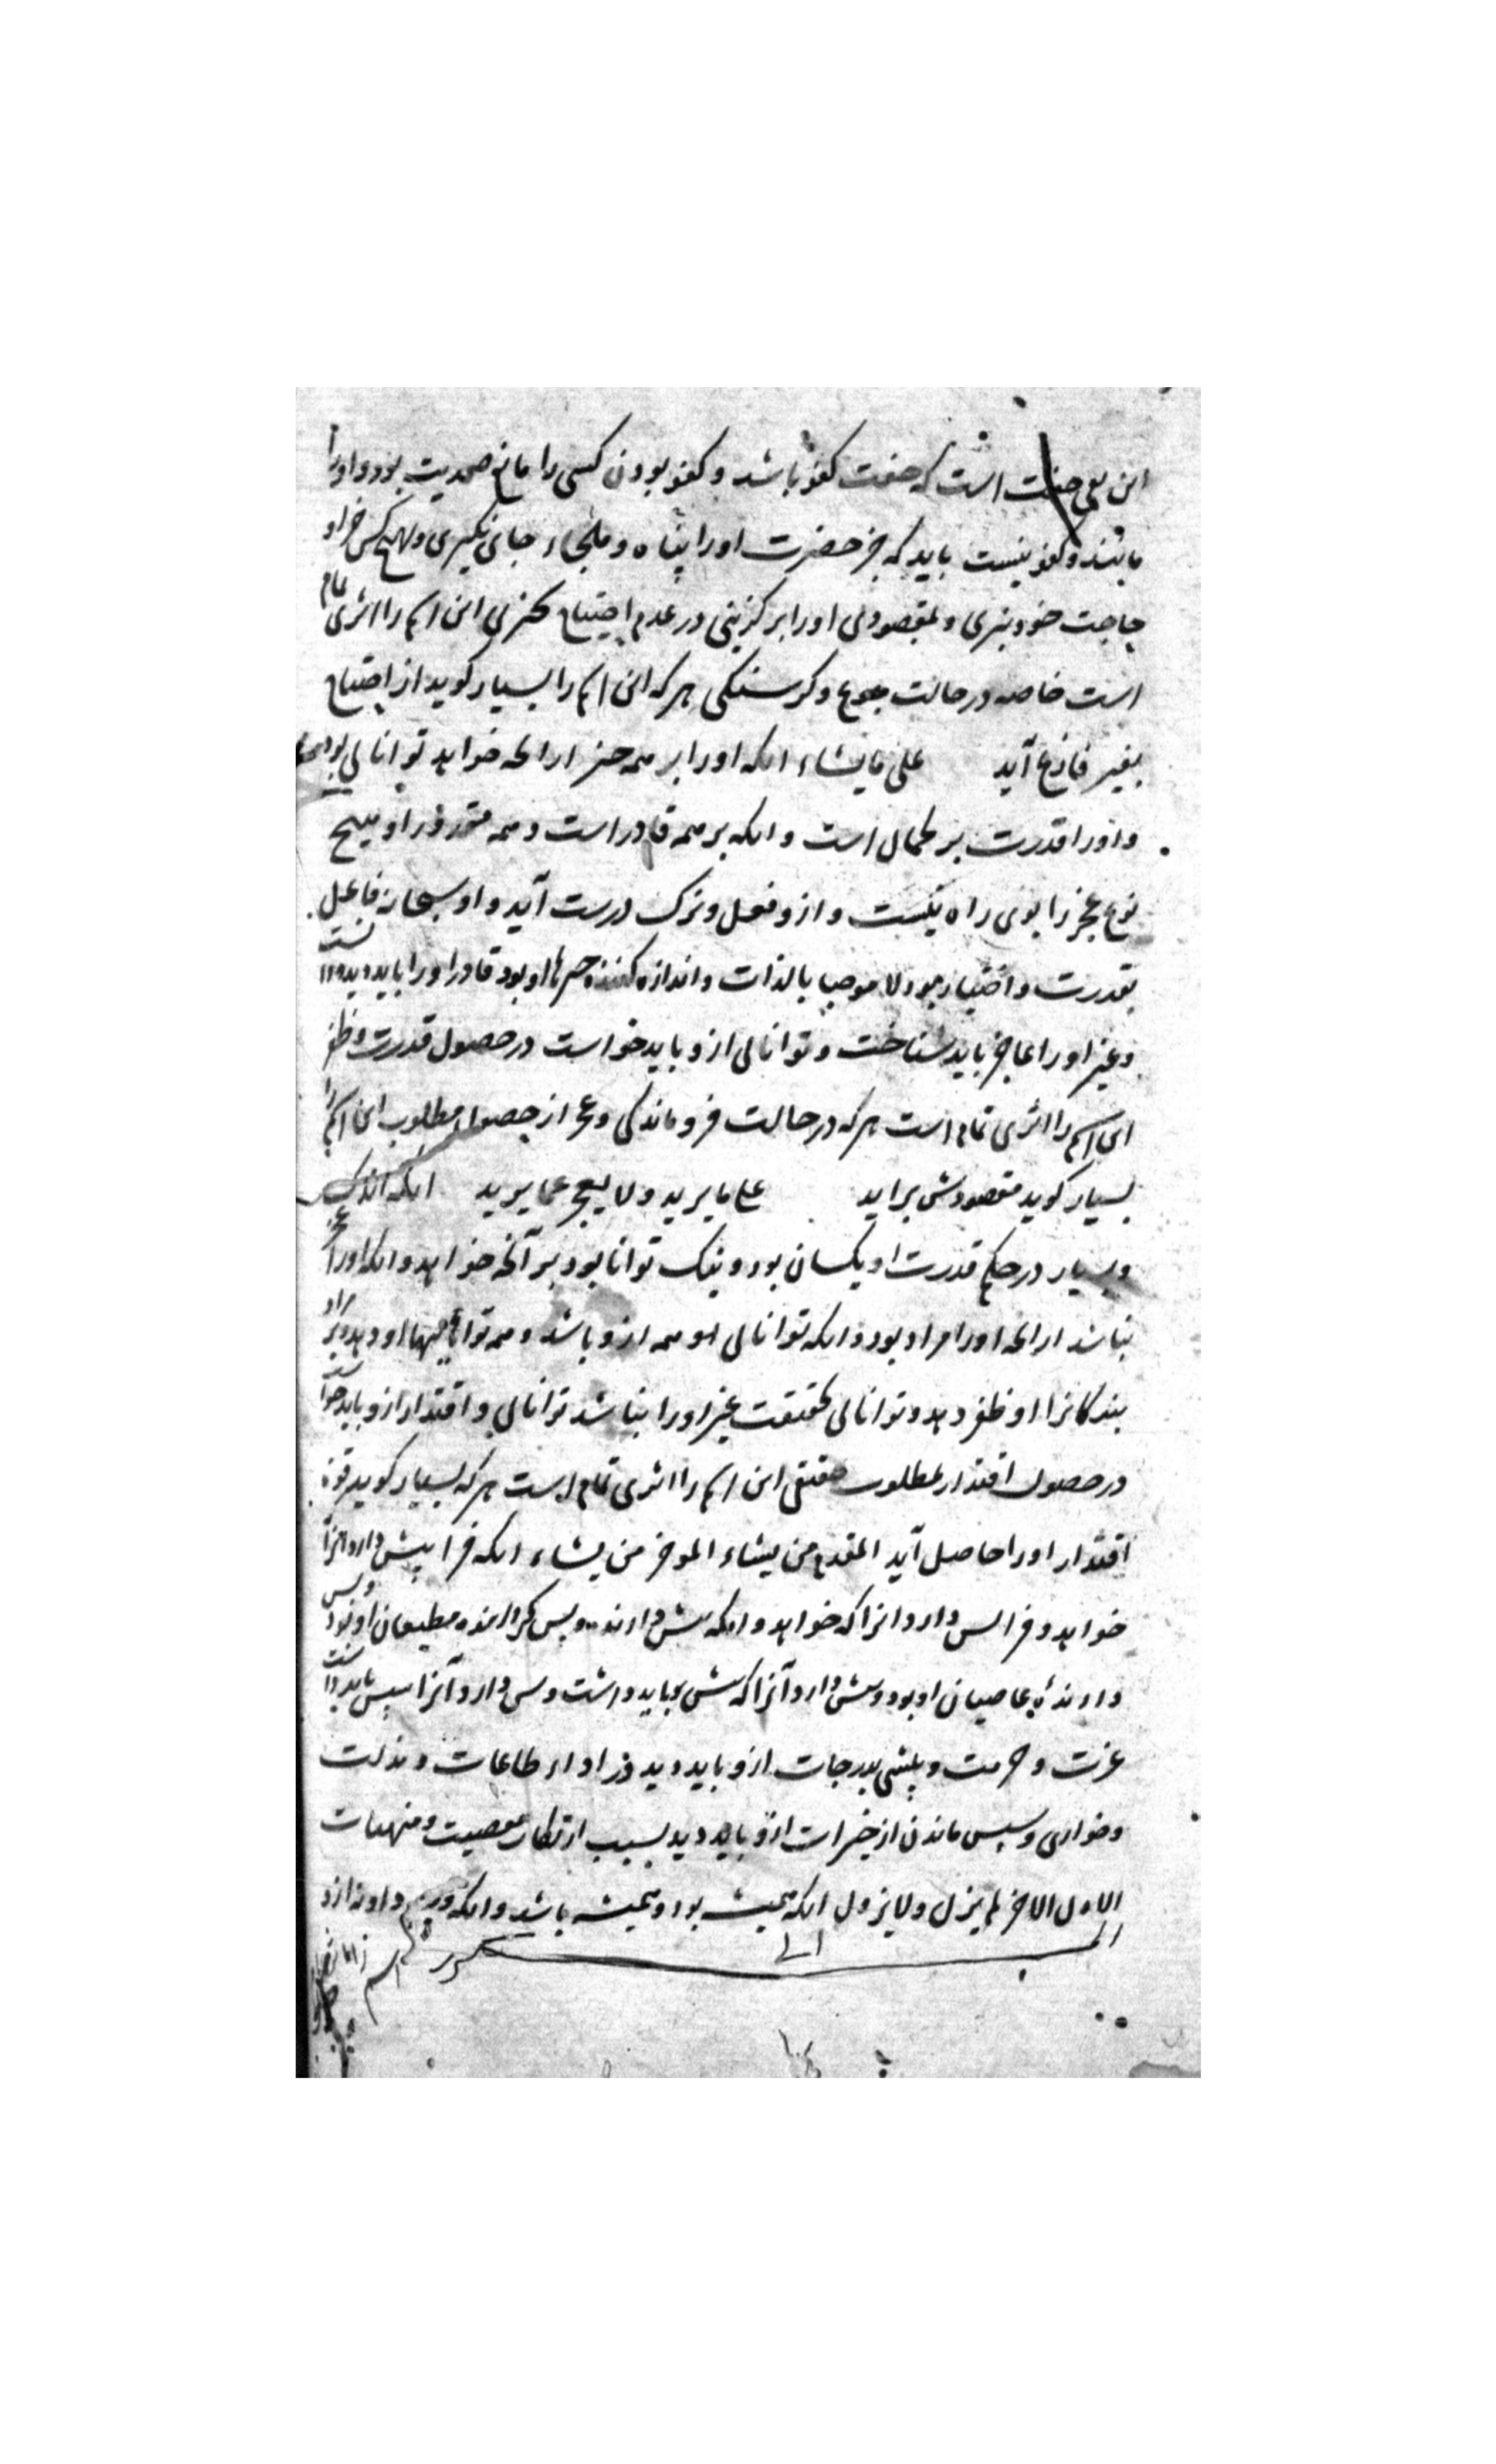 این نفی صفت است که صفت کفو باشد و کفو بودن کسی را مانع صمدیت بود و او را
مانند و کفو نیست باید که جز حضرت او را پناه و ملجاء جای نگیری و بهیچ کس جز او
حاجت خود نبری و بمقصودی او را برگزینی در عدم احتیاج این اسم را اثری تمام
است خاصه در حالت جوع و گرسنگی هر که این اسم را بسیار گوید از احتیاج
بغیر فارغ آید علی ما یشاء آنکه او را بر همه چیز از آنچه خواهد توانائی بود
و او را قدرت بر کمال است و آنکه بر همه قادر است و همه مقدور او هیچ
نوع عجز را بوی راه نیست و ازو فعل و ترک درست آید و او سبحانه فاعل
بقدرت و اختیار بود لا موجبا بالذات و اندازه کننده چیزها او بود قادر او را باید دید
و غیر او را عاجز باید شناخت و توانائی ازو باید خواست در حصول قدرت و ظفر
این اسم را اثری تمام است هر که در حالت فروماندگی و عجز از حصول مطلوب این اسم را
بسیار گوید مقصودش براید علی ما یرید و لا یعجز عما یرید آنکه اندک
و بسیار در حکم قدرت او یکسان بود و نیک توانا بود بر آنچه خواهد و آنکه او را عجز
نباشد از آنچه او را مراد بود و آنکه توانائی همه ازو باشد و همه توانائیها او دهد و بر مراد
بندگانرا او ظفر دهد و توانائی بحقیقت غیر او را نباشد توانائی و اقتدار ازو باید خواست
در حصول اقتدار بمطلوب حقیقی این اسم را اثری تمام است هر که بسیار گوید قوة
اقتدار او را حاصل آید المقدم من یشاء المؤخر من یشاء آنکه فرا پیش دارد آنرا
خواهد و فرا پس دارد آنرا که خواهد و آنکه پیش دارنده مطیعان او بود و پس
دارنده عاصیان او بود و پیش دارد آنرا که پیش باید داشت و پس دارد آنرا سپس باید داشت
عزت و حرمت و پیشی بدرجات ازو باید دید در اداء طاعات و مذلت
و خواری و سپس ماندن از خیرات ازو باید دید بسبب ارتکاب معصیت و منهیات
الاول الاخر لم یزل و لا یزول آنکه همیشه بود و همیشه باشد و آنکه